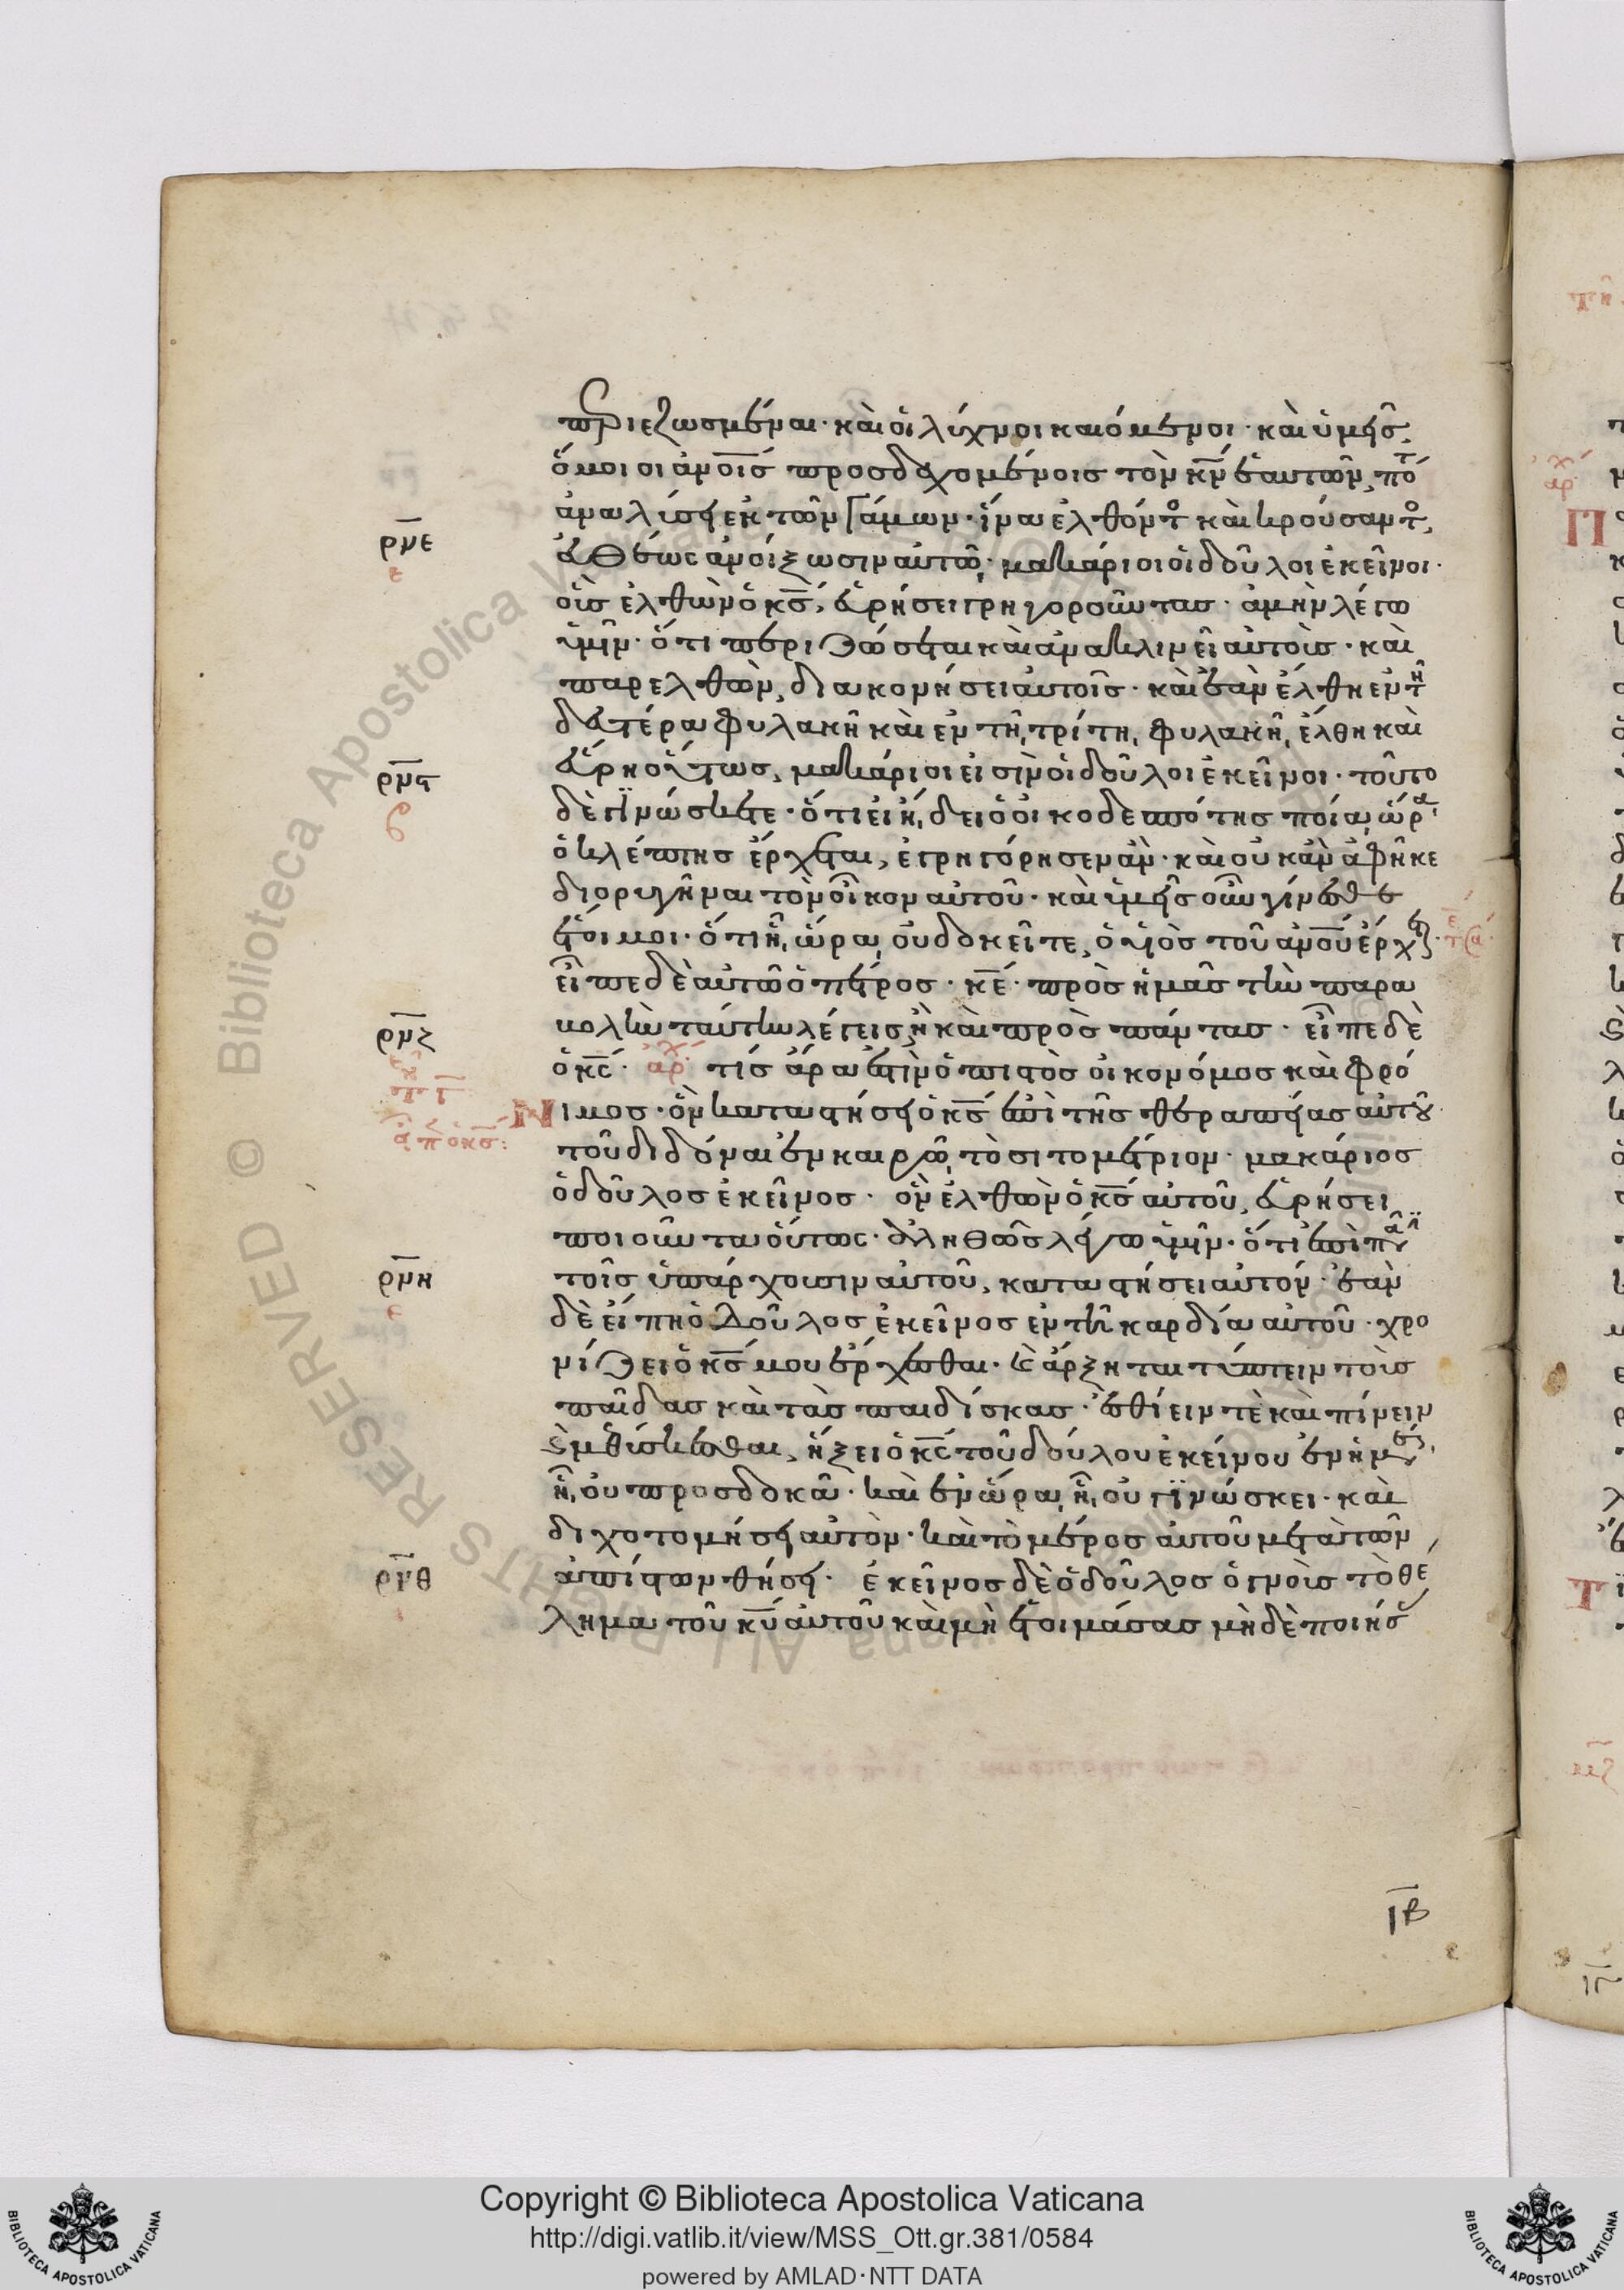 περιεζωσμέναι· καὶ οἱ λύχνοι καιόμενοι· καὶ ὑμεῖς
ὅμοιοι ἀν̅ο̅ι̅ς̅ προσδεχομένοις τὸν κ̅ν̅ ἑαυτῶν, πότ
ρνε ἀναλύσει ἐκ τῶν γάμων· ἵνα ἐλθόντος καὶ κρούσαντος,
εὐθέως ἀνοίξωσιν αὐτῷ· μακάριοι οἱ δοῦλοι ἐκεῖνοι·
οὓς ἐλθὼν ὁ κ̅ς̅, εὑρήσει γρηγοροῦντας· ἀμὴν λέγω
ὑμῖν· ὅτι περιζώσεται καὶ ἀνακλινεῖ αὐτοὺς· καὶ
παρελθὼν, διακονήσει αὐτοῖς· καὶ ἐὰν ἔλθη ἐν τῆ
δευτέρα φυλακῆ καὶ ἐν τῆ τρίτη φυλακῆ ἔλθη καὶ
ρνς εὕρη οὕτως, μακάριοι εἰσὶν οἱ δοῦλοι ἐκεῖνοι· τοῦτο
δὲ γϊνώσκετε· ὅτι εἰ ἤδει ὁ οἰκοδεσπότης ποία ὥρα
ὁ κλέπτης ἔρχεται, ἐγρηγόρησεν ἂν· καὶ οὐκ ἂν ἀφῆκε
διορυγῆναι τὸν οἶκον αὐτοῦ· καὶ ὑμεῖς οὖν γίνεσθε
ἕτοιμοι· ὅτι ἧ ὥρα οὐ δοκεῖτε, ὁ υἱὸς τοῦ ἀν̅ο̅υ̅ ἔρχεται·
εἶπε δὲ αὐτῶ ὁ πέτρος· κ̅ε̅· πρὸς ἡμᾶς τὴν παρα
ρνζ βολὴν ταύτην λέγεις, ἢ καὶ πρὸς πάντας· εἶπε δὲ
ὁ κ̅ς̅· ἀρχ τίς ἄρα ἐστὶν ὁ πιστὸς οἰκονόμος καὶ φρό
εἶπ ὁ κ̅ς̅: νιμος· ὃν καταστήσει ὁ κ̅ς̅ ἐπὶ τῆς θεραπείας αὐτοῦ
τοῦ διδόναι ἐν καιρῶ τὸ σιτομέτριον· μακάριος
ὁ δοῦλος ἐκεῖνος· ὃν ἐλθὼν ὁ κ̅ς̅ αὐτοῦ, εὑρήσει
ποιοῦντα οὕτως· ἀληθῶς λέγω ὑμῖν· ὅτι ἐπὶ πᾶσι
ρνη τοῖς ὑπάρχουσιν αὐτοῦ, καταστήσει αὐτόν· ἐὰν
δὲ εἴπη ὁ δοῦλος ἐκεῖνος ἐν τῆ καρδία αὐτοῦ· χρο
νίζει ὁ κ̅ς̅ μου ἔρχεσθαι· καὶ ἄρξηται τύπτειν τοὺς
παῖδας καὶ τὰς παιδίσκας· ἐσθίειν τὲ καὶ πίνειν
καὶ μεθύσκεσθαι, ἥξει ὁ κ̅ς̅ τοῦ δούλου ἐκείνου ἐν ἡμέρα
ἧ οὐ προσδοκᾶ· καὶ ἐν ὥρα ἧ οὐ γϊνώσκει· καὶ
διχοτομήσει αὐτὸν· καὶ τὸ μέρος αὐτοῦ μετὰ τῶν
ρνθ ἀπίστων θήσει· ἐκεῖνος δὲ ὁ δοῦλος ὁ γνοὺς τὸ θέ
λημα τοῦ κ̅υ̅ αὐτοῦ καὶ μὴ ἑτοιμάσας μὴ δὲ ποιήσας
ιβ
Biblioteca Apostolica Vaticana ALL RIGHTS RESERVED ©
Copyright © Biblioteca Apostolica Vaticana
http://digi.vatlib.it/view/MSS_Ott.gr.381/0584
powered by AMLAD·NTT DATA
BIBLIOTECA APOSTOLICA VATICANA
BIBLIOTECA APOSTOLICA VATICANA